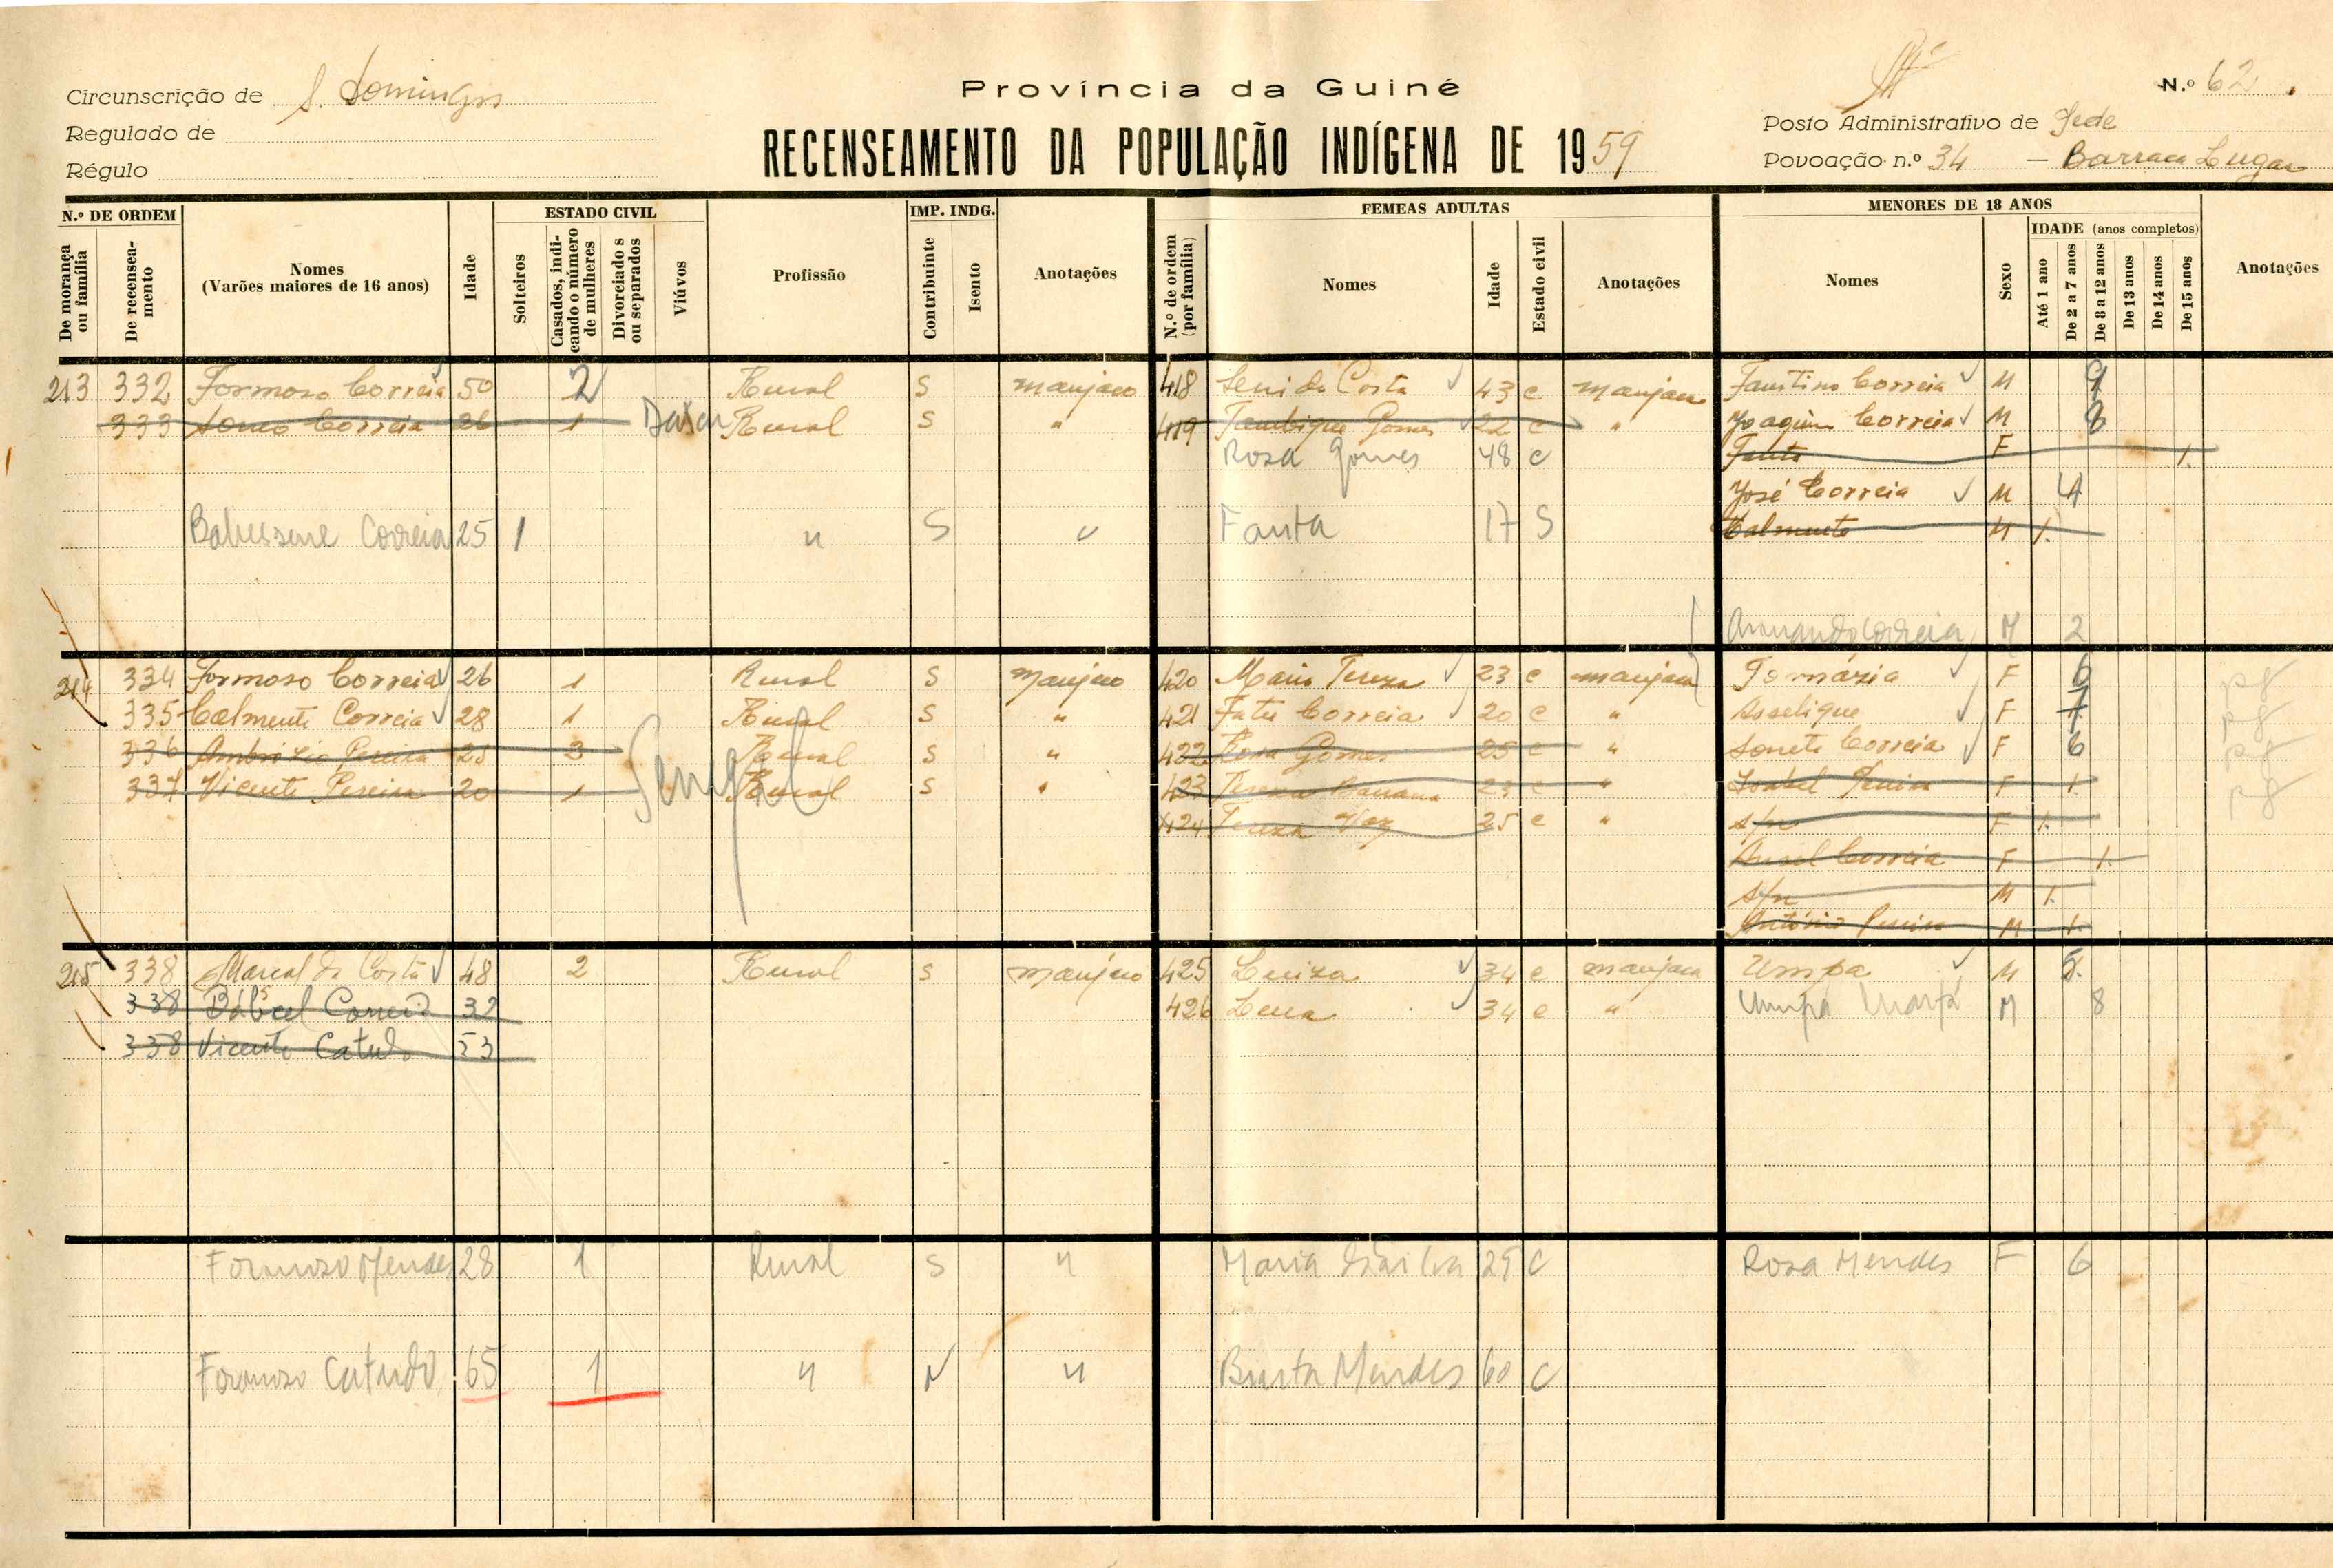 Província da Guiné
Circunscrição de S. Domingos
Regulado de
Régulo
RECENSEAMENTO DA POPULAÇÃO INDÍGENA DE 1959
N.º 62.
Posto Administrativo de Sede
Povoação n.º 34 — Barraca Lugar
N.º DE ORDEM
De morança ou família
De recenseamento
Nomes
(Varões maiores de 16 anos)
Idade
ESTADO CIVIL
Solteiros
Casados, indicando o número de mulheres
Divorciados ou separados
Viúvos
Profissão
IMP. INDG.
Contribuinte
Isento
Anotações
FEMEAS ADULTAS
N.º de ordem (por família)
Nomes
Idade
Estado civil
Anotações
MENORES DE 18 ANOS
Nomes
Sexo
IDADE (anos completos)
Até 1 ano
De 2 a 7 anos
De 8 a 12 anos
De 13 anos
De 14 anos
De 15 anos
Anotações
213 332 Formoso Correia 50 2 Rural S manjaco 418 Seni da Costa 43 c manjaca Faustino Correia M 9
333 Correia 26 1 Rural S " 419 Tambique Gomes 22 c " Joaquim Correia M 8
Rosa Gomes 48 c Fanta F 1
José Correia M 4
Babessene Correia 25 1 " S " Fanta 17 S Calmente M 1
Armando Correia M 2
214 334 Formoso Correia 26 1 Rural S Manjaco 420 Maria Tereza 23 c manjaca Tomázia F 6
335 Calmente Correia 28 1 Rural S " 421 Fatu Correia 20 c " Asselique F 7
336 Ambrózio Pereira 25 3 Rural S " 422 Rosa Gomes 25 c " Sonete Correia F 6
337 Vicente Pereira 20 1 Senegal Rural S " 423 Tereza 23 c " Isabel Pereira F 1
424 Tereza Vaz 25 c " s/n F 1
Correia F 1
s/n M 1
António Pereira M 1
215 338 Marcal da Costa 48 2 Rural S manjaco 425 Luiza 34 c manjaca Umpa M 5
338 Correia 32 426 Lena 34 c " Umpa M 8
338 Vicente Catudo 53
Formoso Mendes 28 1 Rural S " Maria da Silva 25 C Rosa Mendes F 6
Formoso Catudo 65 1 " N " Mendes 60 C